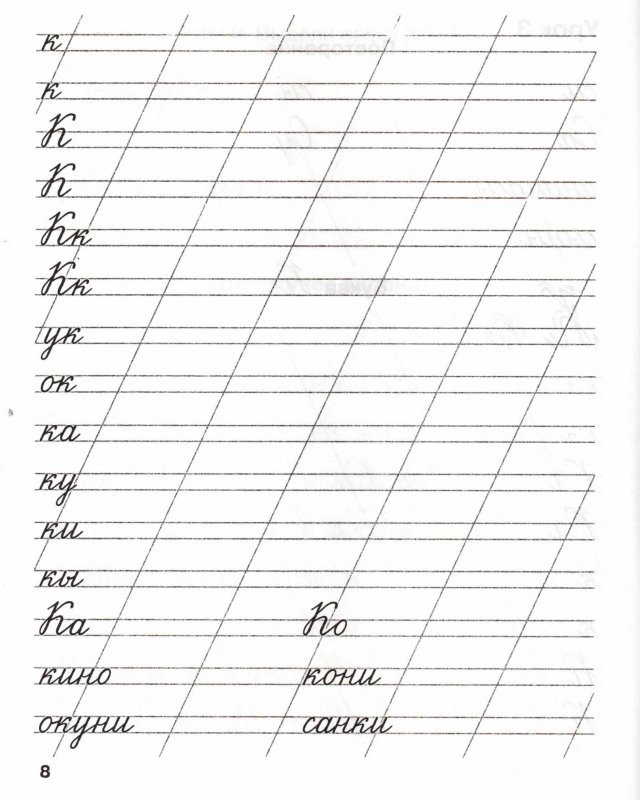 к
к
К
К
Кк
Кк
ук
ок
ка
ку
ки
кы
Ка Ко
кино кони
окуни санки
8